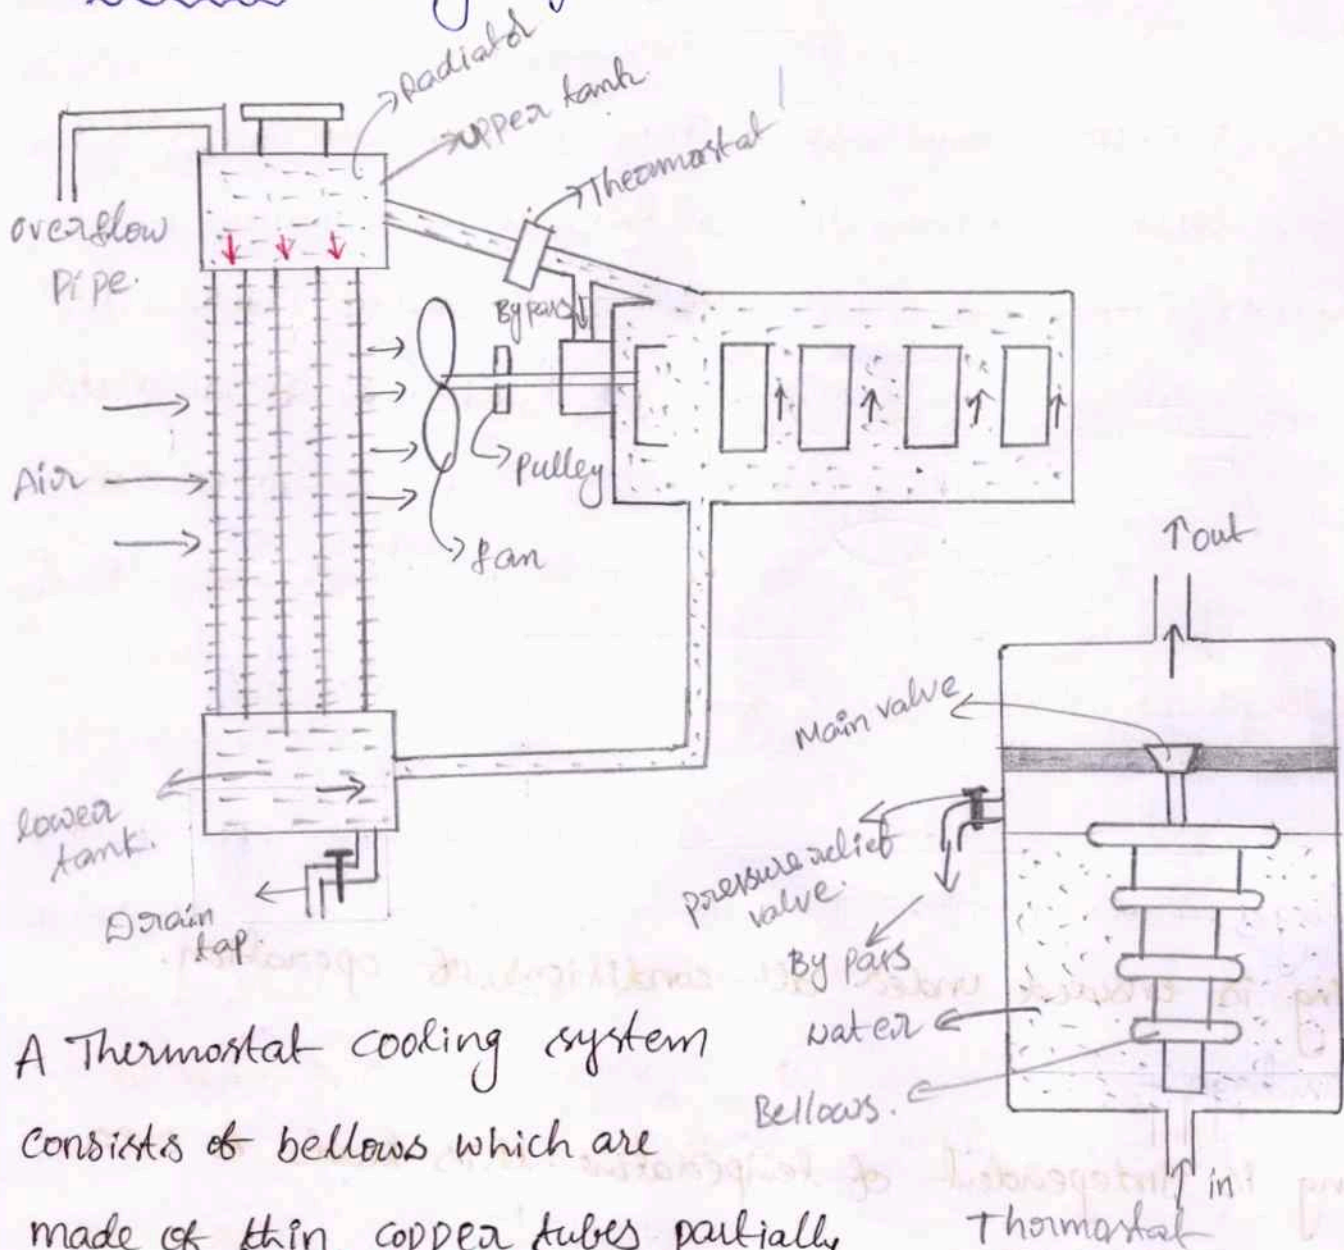 Radiator
upper tank
Thermostat
overflow
pipe.
By pass
Air
pulley
fan
out
Main valve
lower
tank.
Drain
tap.
pressure relief
valve.
By pass
water
Bellows.
in
Thermostat
A Thermostat cooling system
consists of bellows which are
made of thin copper tubes partially